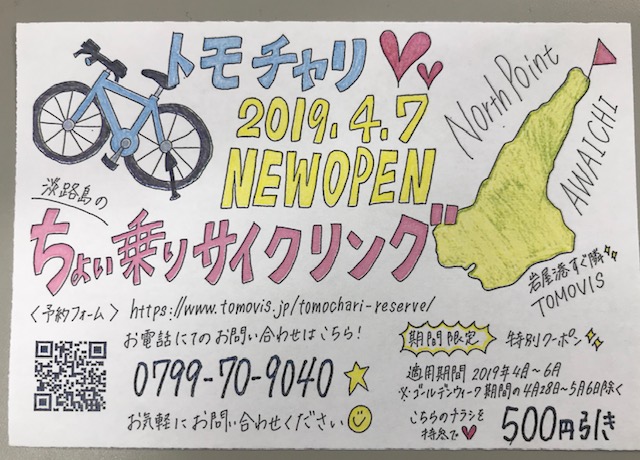 トモチャリ
2019.4.7
NEWOPEN
North Point
AWAICHI
淡路島の
ちょい乗りサイクリング
岩屋港すぐ隣
TOMOVIS
〈予約フォーム〉 https://www.tomovis.jp/tomochari-reserve/
お電話にてのお問い合わせはこちら!
0799-70-9040
お気軽にお問い合わせください
期間限定 特別クーポン
適用期間 2019年4月～6月
※ゴールデンウィーク期間の4月28日～5月6日除く
こちらのチラシを
持参で
500円引き